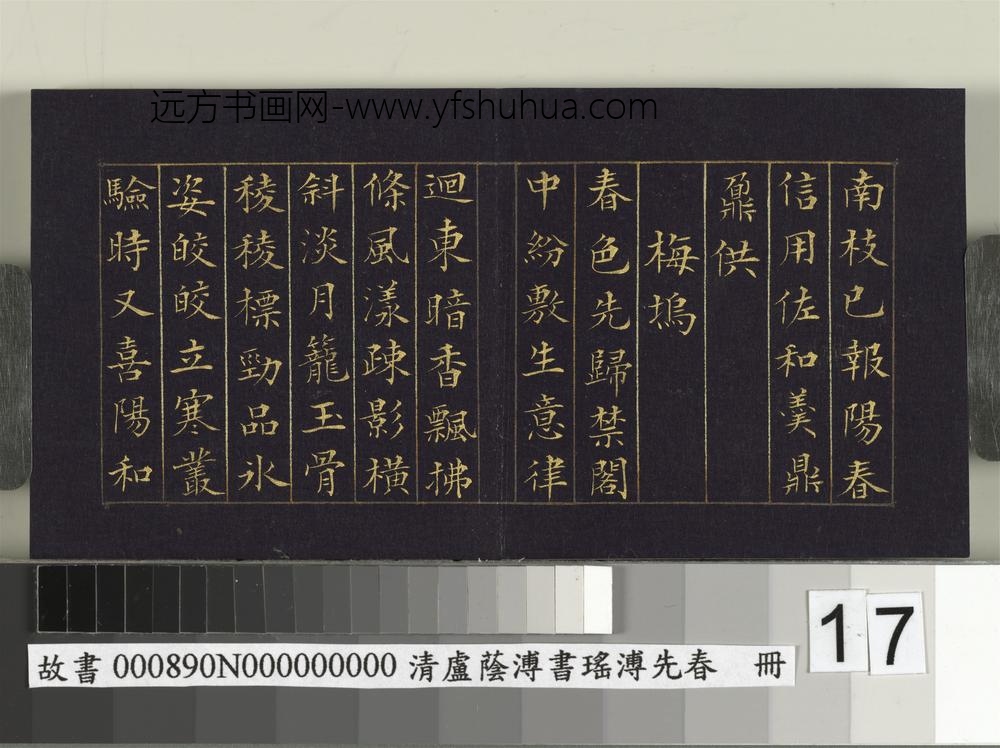 远方书画网-www.yfshuhua.com
南枝已報陽春
信用佐和羹鼎
鼐供
梅塢
春色先歸禁閣
中紛敷生意律
迴東暗香飄拂
條風漾疎影橫
斜淡月籠玉骨
稜稜標勁品氷
姿皎皎立寒叢
驗時又喜陽和
17
故書 000890N000000000 清盧蔭溥書瑤溥先春 冊